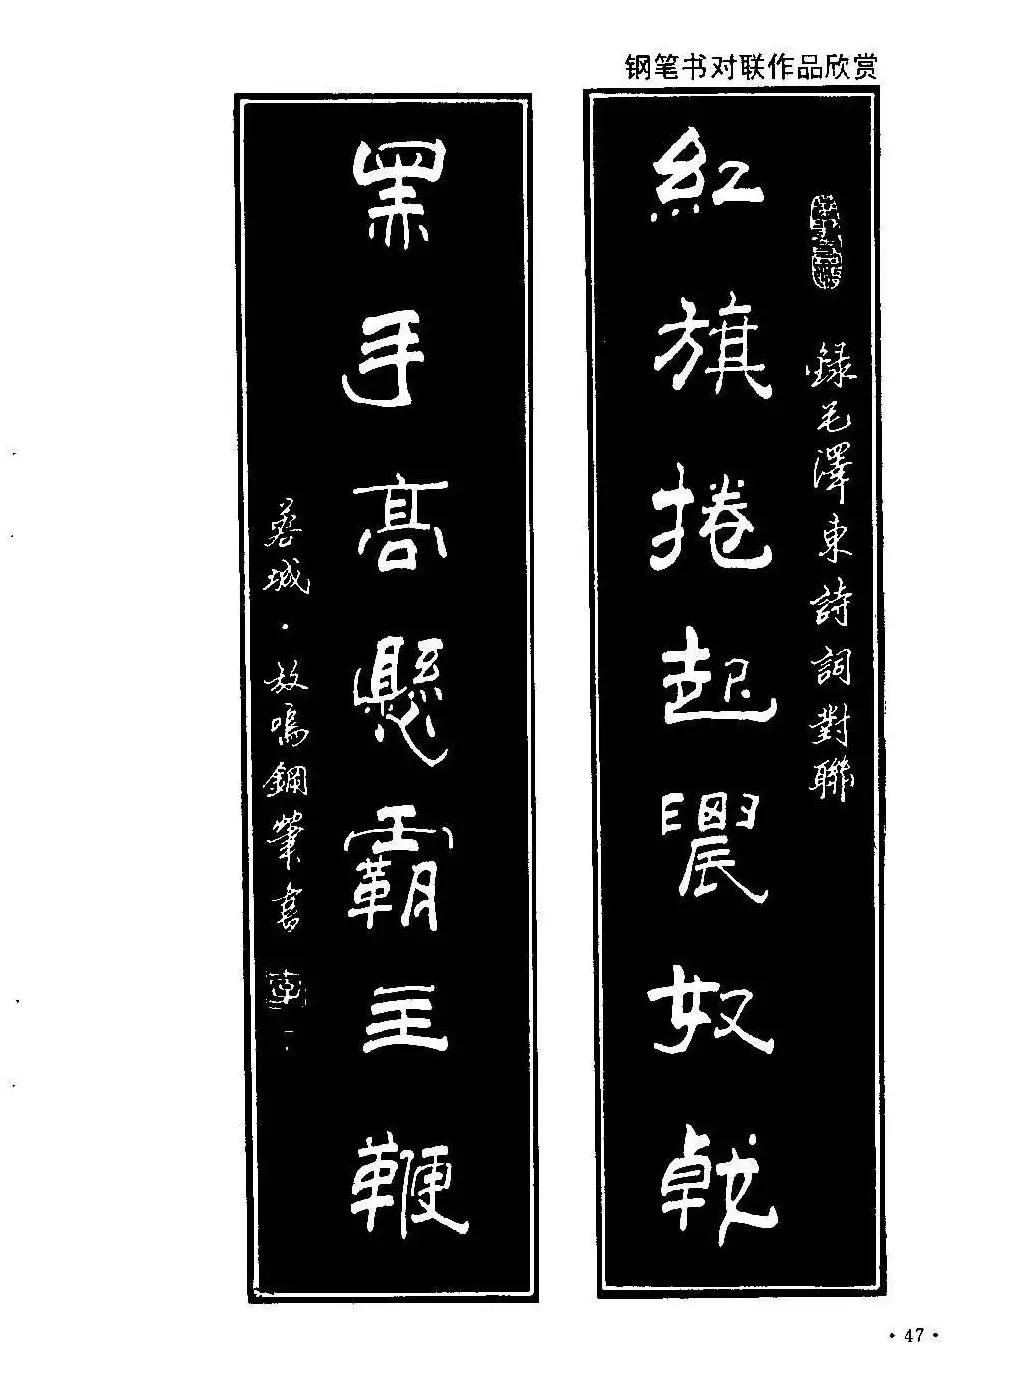 钢笔书对联作品欣赏
録毛澤東詩詞對聯
紅旗捲起農奴戟
黑手高懸霸主鞭
城·放鳴鋼筆書
·47·